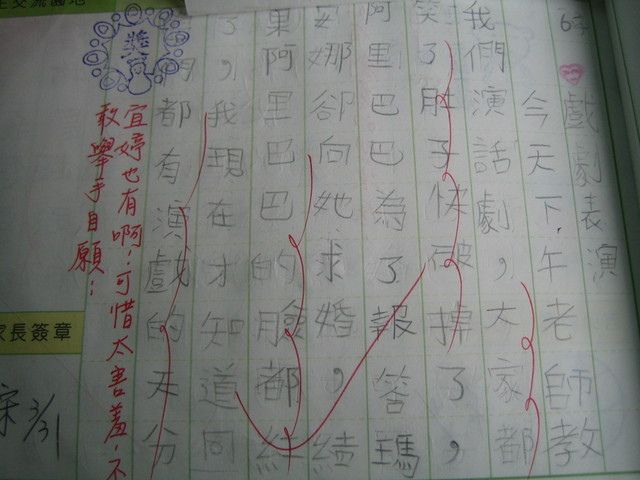 戲劇表演
今天下午老師教
我們演話劇，大家都
笑了肚子快破掉了，
阿里巴巴為了報答瑪
娜卻向她求婚，結
果阿里巴巴的臉都紅
了，我現在才知道同
們都有演戲的天分
宜婷也有啊！可惜太害羞，不
敢舉手自願！
交流園地
家長簽章
宋 3/31